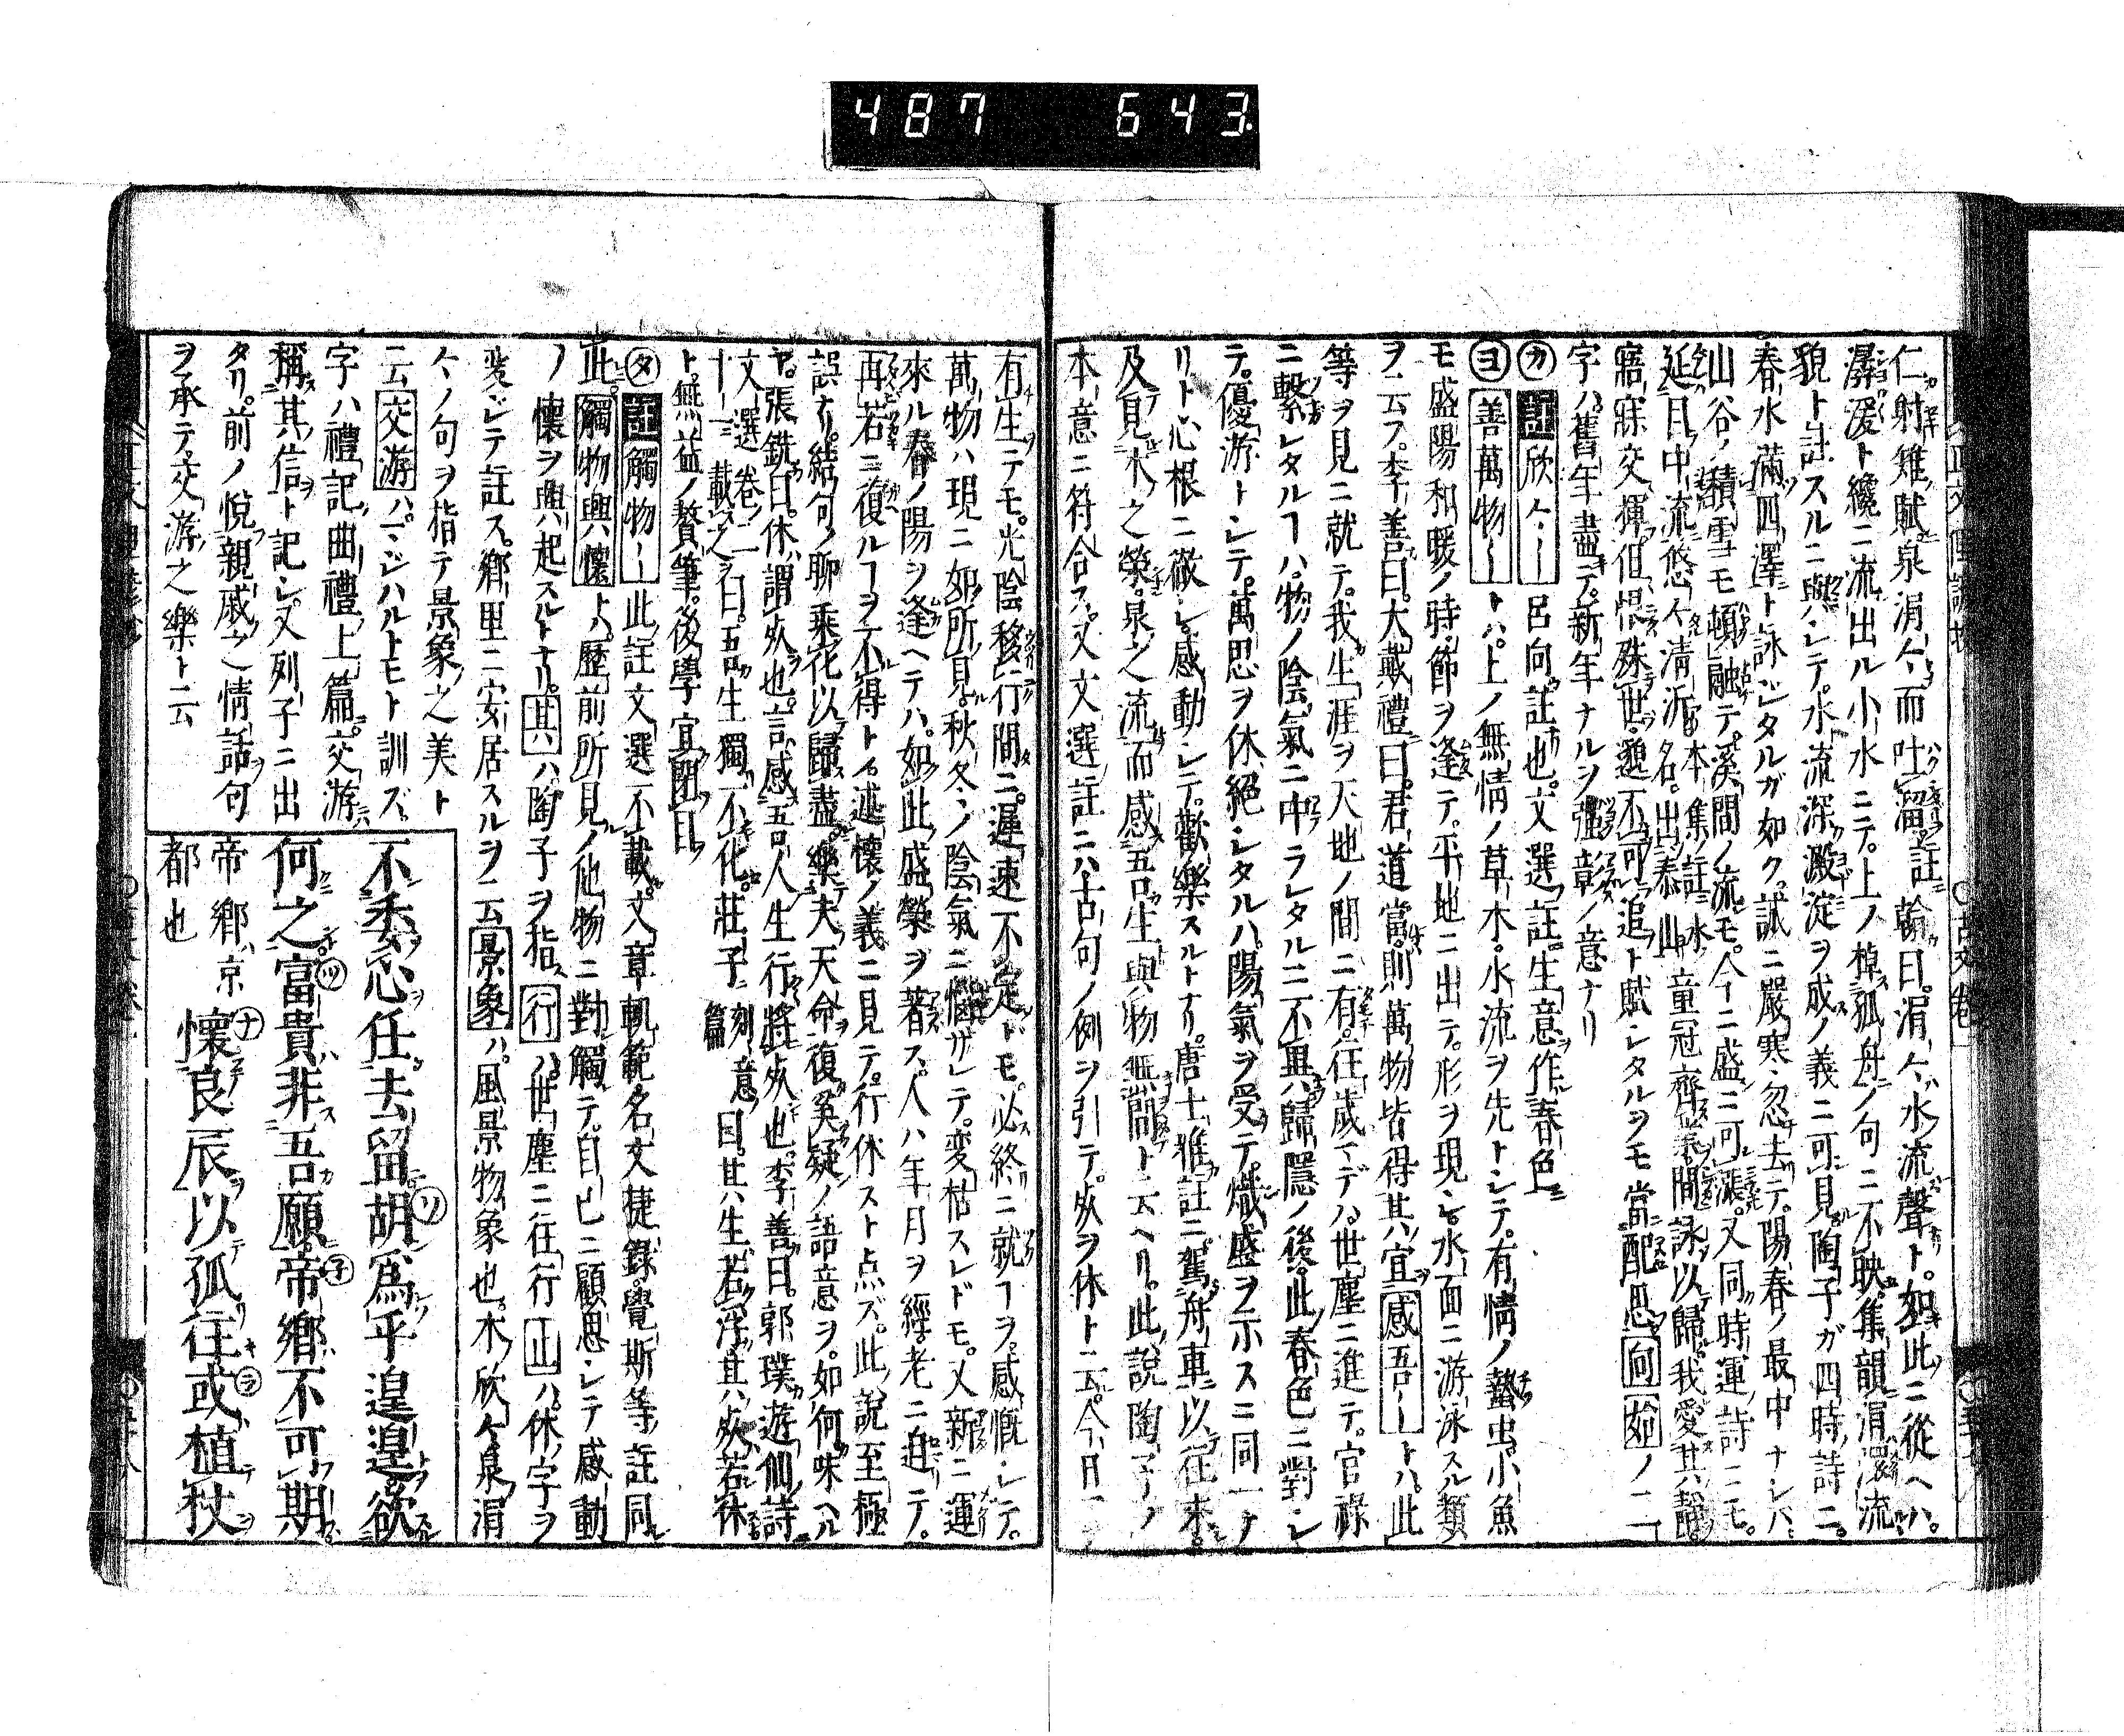 487 643
仁射雉賦泉涓々而吐溜註翰曰涓々水流聲ト如此ニ從ヘハ
潺湲ト纔ニ流出ル小水ニテ上ノ棹孤舟ノ句ニ不映集韻涓澴流
貌ト註スルニ與シテ水流深澱淀ヲ成ノ義ニ可見陶子ガ四時詩ニ
春水滿四澤ト詠ジタルガ如ク誠ニ嚴寒忽去テ陽春ノ最中ナレバ
山谷ノ積雪モ頓融テ溪間ノ流モ今ニ盛ニ可漲又同時運詩ニモ
延目中流悠々清沂本集註水名出泰山童冠齊業間詠以歸我愛其靜
寤寐交揮但恨殊世邈不可追ト賦シタルヲモ當配思向始ノ二
字ハ舊年盡テ新年ナルヲ彊彰ノ意ナリ
カ註欣々ー呂向註也文選註生意作春色
ヨ善萬物ートハ上ノ無情ノ草木水流ヲ先トシテ有情ノ蟄虫小魚
モ盛陽和暖ノ時節ヲ逢テ平地ニ出テ形ヲ現シ水面ニ游泳スル類
ヲ云フ李善曰大戴禮曰君道當則萬物皆得其宜感吾ートハ此
等ヲ見ニ就テ我生涯ヲ天地ノ間ニ有往歳マデハ世塵ニ進テ官祿
ニ繫レタルヿハ物ノ陰氣ニ中ラレタルニ不異歸隱ノ後此春色ニ對シ
テ優游トシテ萬思ヲ休絕シタルハ陽氣ヲ受テ熾盛ヲ示スニ同ケ
リト心根ニ徹シ感動シテ歡樂スルトナリ唐士雅註ニ駕舟車以往來
及見木之榮泉之流而感吾生與物無間ト云ヘリ此說陶子ノ
本意ニ符合ス又文選註ニハ古句ノ例ヲ引テ死ヲ休ト云今日
有生テモ光陰移行間ニ遲速不定ドモ必終ニ就ヿヲ感慨シテ
萬物ハ現ニ如所見秋冬ノ陰氣ニ惱サレテ変枯スレドモ又新ニ運
來ル春ノ陽ヲ逢ヘテハ如此盛榮ヲ著ス人ハ年月ヲ經老ニ迫テ
再若ニ復ルヿヲ不得ト述懷ノ義ニ見テ行休スト点ズ此說至極
誤ナリ結句ノ聊乘化以歸盡樂夫天命復奚疑ノ語意ヲ如何味ヘル
ヤ張銑曰休謂死也言感吾人生行將死也李善曰郭璞遊仙詩
文選卷ノ二十一ニ載之曰吾生獨不化莊子刻意篇曰其生若浮其死若休
ト無益ノ贅筆後學宜閉目
タ註觸物ー此註文選不載文章軌範名文捷錄覺斯等註同
此觸物興懷ト歷前所見ノ他物ニ對觸テ自己ニ顧思シテ感動
ノ懷ヲ興起スルトナリ其ハ陶子ヲ指行ハ世塵ニ往行止ハ休ノ字ヲ
変ジテ註ス鄕里ニ安居スルヲ云景象ハ風景物象也木欣々泉涓
々ノ句ヲ指テ景象之美ト
云交游ハマジハルトモト訓ズ
字ハ禮記曲禮上篇交游
稱其信ト記シ又列子ニ出
タリ前ノ悅親戚之情話句
ヲ承テ交游之樂ト云
不委心任去留胡爲乎遑遑欲
何之富貴非吾願帝鄕不可期
帝鄕京都也懷良辰以孤往或植杖